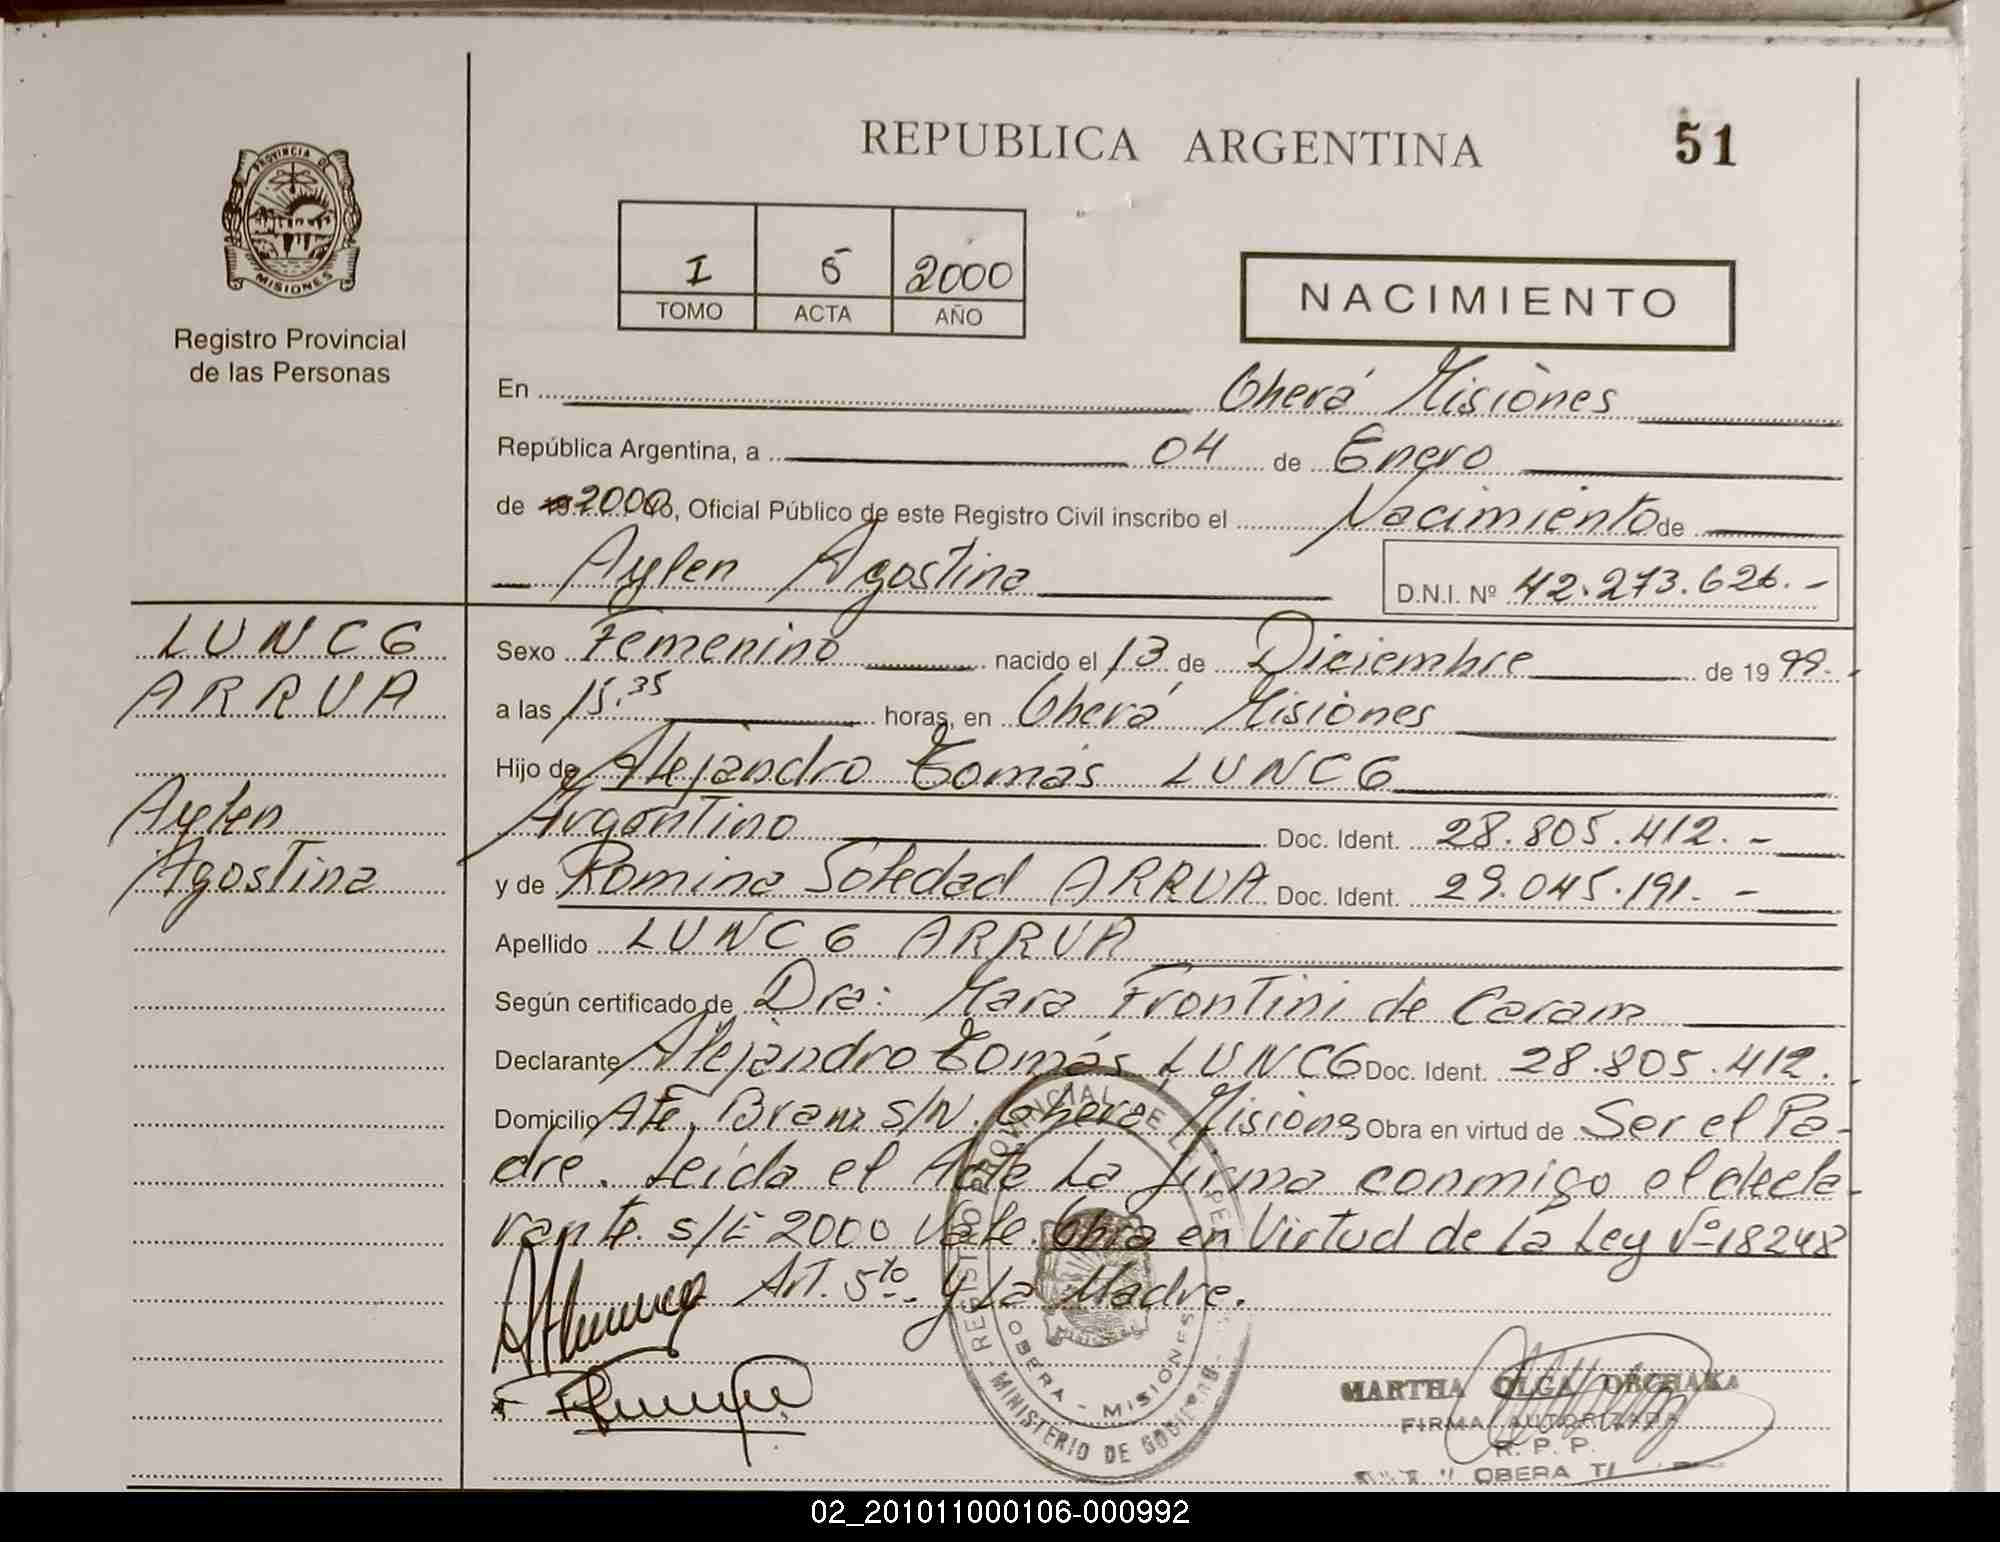 REPUBLICA ARGENTINA
51
PROVINCIA DE
MISIONES
Registro Provincial
de las Personas
I 5 2000
TOMO ACTA AÑO
NACIMIENTO
En Oberá Misiones
República Argentina, a 04 de Enero
de 2000, Oficial Público de este Registro Civil inscribo el Nacimiento de
Aylen Agostina
D.N.I. Nº 42.273.626.-
LUNCG
ARRUA
Aylen
Agostina
Sexo Femenino nacido el 13 de Diciembre de 1999.
a las 15.35 horas, en Oberá Misiones
Hijo de Alejandro Tomás LUNCG
Argentino Doc. Ident. 28.805.412.-
y de Romina Soledad ARRUA Doc. Ident. 29.045.191.-
Apellido LUNCG ARRUA
Según certificado de Dra: Mara Frontini de Caram
Declarante Alejandro Tomás LUNCG Doc. Ident. 28.805.412.
Domicilio Ate. Brown s/N. Oberá Misiones Obra en virtud de Ser el Pa-
dre. Leída el Acta La firma conmigo el decla-
rante. s/L 2000 Vale. Obra en Virtud de La Ley Nº 18248
Art. 5to. y La Madre.
REGISTRO PROVINCIAL DE L PE
OBERA - MISIONES
MINISTERIO DE GOBIERNO
MARTHA OLGA OBCHAKA
FIRMA AUTORIZADA
R. P. P.
OBERA
02_201011000106-000992